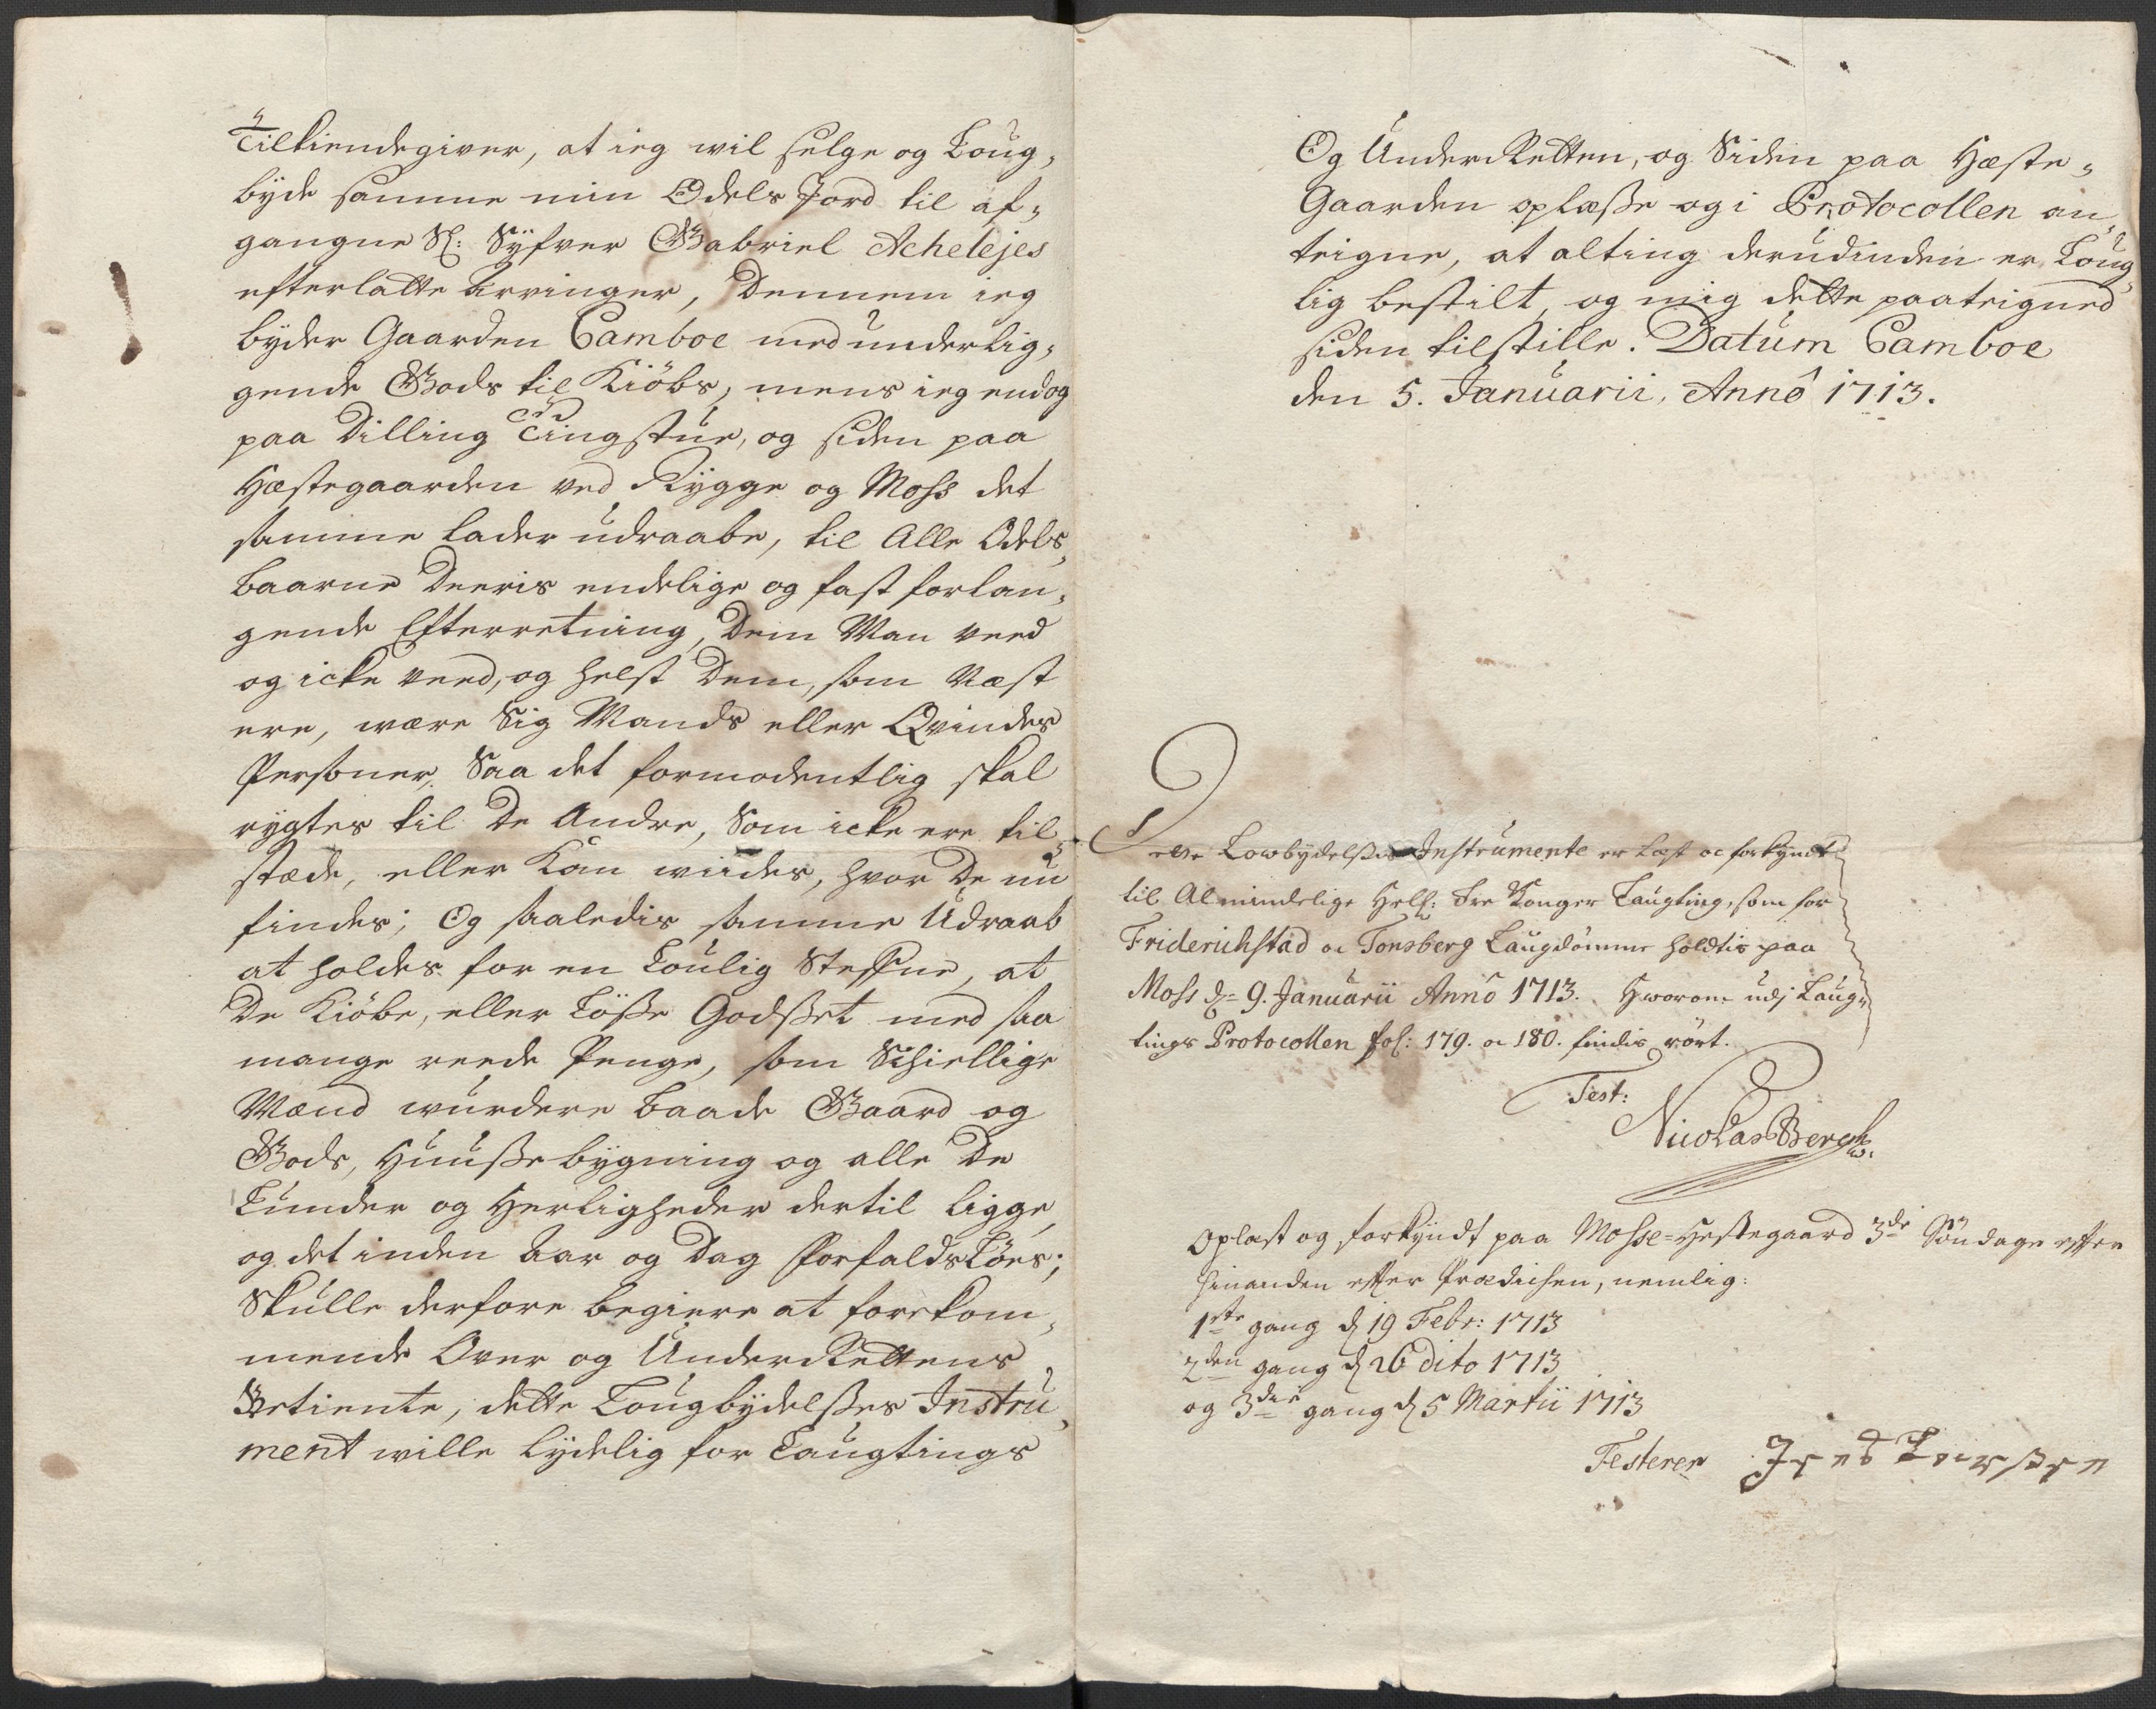 Tilkiendegiver, at ieg wil selge og Loug,,
byde samme min Odels Jord til af,,
gangne Sl: Syfver Gabriel Achelejes
efterlatte Arvinger, Dennem ieg
byder Gaarden Camboe med underlig,,
gende Gods til Kiöbs, mens ieg endog
paa Dilling Tingstue, og siden paa
Hæstegaarden ved Rygge og Moss det
samme lader udraabe, til Alle Odels,,
baarne Deeris endelige og fast forlan,,
gende Efterretning, Dem Man veed
og icke veed, og helst Dem, som Næst
ere, være Sig Mands eller Qvindes
Personer, Saa det formodentlig skal
rygtes til De Andre, Som icke ere til,,
stæde, eller Kan wiides, hvor De nu
findes; Og saaledis samme Udraab
at holdes for en Loulig Steffne, at
De Kiöbe, eller Lösse Godsset med saa
mange reede Penge, som Schiellige
Mænd wurdere baade Gaard og
Gods, Huussebygning og alle De
Lunder og Herligheder dertil ligge,
og det inden Aar og Dag Forfaldslöes;
Skulle derfore begiere at forekom,,
mende Over og UnderRettens
Betiente, dette Lougbydelsses Instru,,
ment wille lydelig for Laugtings
Og UnderRetten, og Siden paa Hæste,,
Gaarden oplæsse og i Protocollen an,,
teigne, at alting derudinden er Loug,,
lig bestilt, og mig dette paateigned
siden tilstille. Datum Camboe
den 5. Januarii, Annô 1713.
Dette Lowbydelsses Instrumente er læst oc forkyndt
til Almindelige Hell: Tre Konger Laugting, som for
Friderichstad oc Tonsberg Laugdömme holdtis paa
Moss d: 9. Januarii Annô 1713. Hworom udj Laug,,
tings Protocollen fol: 179. oc 180. findis rört.
Test:
Nicolas Bergh
Oplæst og forkyndt paa Mosse-Hestegaard 3de Söndage effter
hinanden effter Prædichen, nemlig:
1ste gang d 19 Febr: 1713
2den gang d 26 dito 1713
og 3die gang d 5 Martii 1713
Testerer